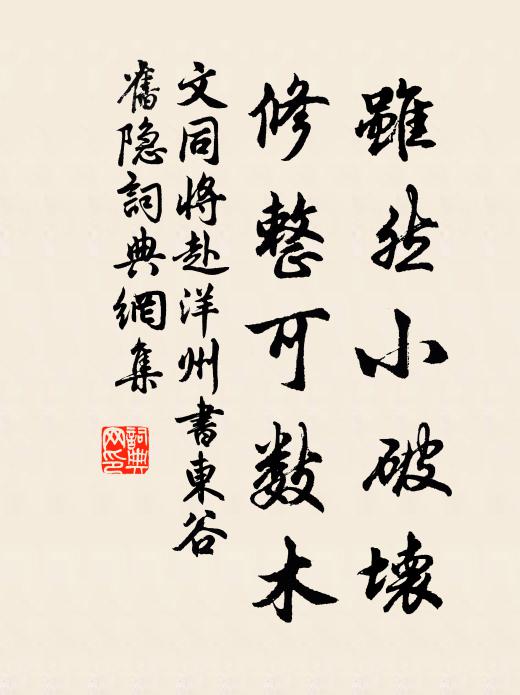 雖然小破壞
修整可數木
文同將赴洋州書東谷
舊隐詞典網集
詞典
网印